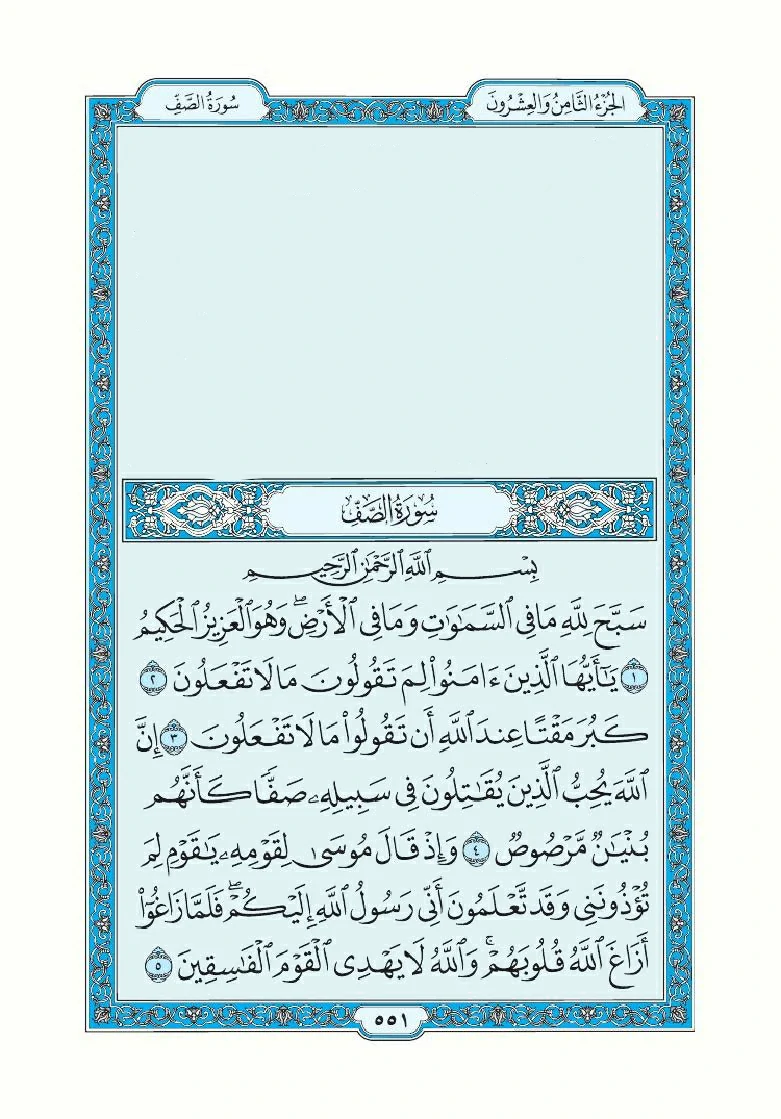 الجُزْءُ الثَّامِنُ وَالعِشْرُونَ
سُورَةُ الصَّفِّ
سُورَةُ الصَّفِّ
بِسْمِ ٱللَّهِ ٱلرَّحْمَٰنِ ٱلرَّحِيمِ
سَبَّحَ لِلَّهِ مَا فِي ٱلسَّمَٰوَٰتِ وَمَا فِي ٱلْأَرْضِۖ وَهُوَ ٱلْعَزِيزُ ٱلْحَكِيمُ
١ يَٰٓأَيُّهَا ٱلَّذِينَ ءَامَنُوا۟ لِمَ تَقُولُونَ مَا لَا تَفْعَلُونَ ٢
كَبُرَ مَقْتًا عِندَ ٱللَّهِ أَن تَقُولُوا۟ مَا لَا تَفْعَلُونَ ٣ إِنَّ
ٱللَّهَ يُحِبُّ ٱلَّذِينَ يُقَٰتِلُونَ فِي سَبِيلِهِۦ صَفًّا كَأَنَّهُم
بُنْيَٰنٌ مَّرْصُوصٌ ٤ وَإِذْ قَالَ مُوسَىٰ لِقَوْمِهِۦ يَٰقَوْمِ لِمَ
تُؤْذُونَنِي وَقَد تَّعْلَمُونَ أَنِّي رَسُولُ ٱللَّهِ إِلَيْكُمْۖ فَلَمَّا زَاغُوٓا۟
أَزَاغَ ٱللَّهُ قُلُوبَهُمْۚ وَٱللَّهُ لَا يَهْدِي ٱلْقَوْمَ ٱلْفَٰسِقِينَ ٥
٥٥١